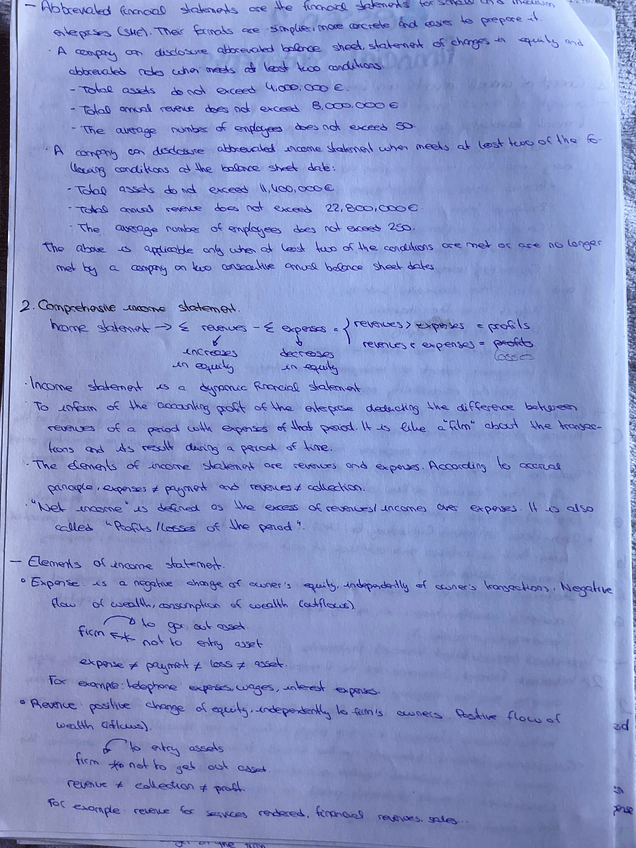 — Abbrevated financial statements are the financial statements for small and medium
enterpises (SME). Their formats are simplier, more concrete and easier to prepare it
· A company can disclosure abbrevated balance sheet, statement of changes in equity and
abbrevated notes when meets at least two conditions.
- Total assets do not exceed 4,000,000 €.
- Total annual revenue does not exceed 8,000,000 €
- The average number of employees does not exceed 50.
· A company can disclosure abbrevated income statement when meets at least two of the fo-
llowing conditions at the balance sheet date:
- Total assets do not exceed 11,400,000 €
- Total annual revenue does not exceed 22,800,000 €
- The average number of employees does not exceed 250.
The above is applicable only when at least two of the conditions are met or are no longer
met by a company on two consecutive annual balance sheet dates
2. Comprehensive income statement.
Income statement → Σ revenues - Σ expenses = { revenues > expenses = profits
revenues < expenses = profits
losses
increases decreases
in equity in equity
· Income statement is a dynamic financial statement
· To inform of the accounting profit of the enterpise deducting the difference between
revenues of a period with expenses of that period. It is like a "film" about the transac-
tions and its result during a period of time.
· The elements of income statement are revenues and expenses. According to accrual
principle, expenses ≠ payment and revenues ≠ collection.
· "Net income" is defined as the excess of revenues/incomes over expenses. It is also
called "Profits/losses of the period".
— Elements of income statement.
° Expense is a negative change of owner's equity, independently of owner's transactions. Negative
flow of wealth, consumption of wealth (outflows)
to go out asset
firm not to entry asset
expense ≠ payment ≠ loss ≠ asset.
For example: telephone expenses, wages, interest expenses.
° Revenue: positive change of equity, independently to firm's owners. Positive flow of
wealth (iflows).
to entry assets
firm not to get out asset
revenue ≠ collection ≠ profit.
For example: revenue for services rendered, financial revenues, sales...